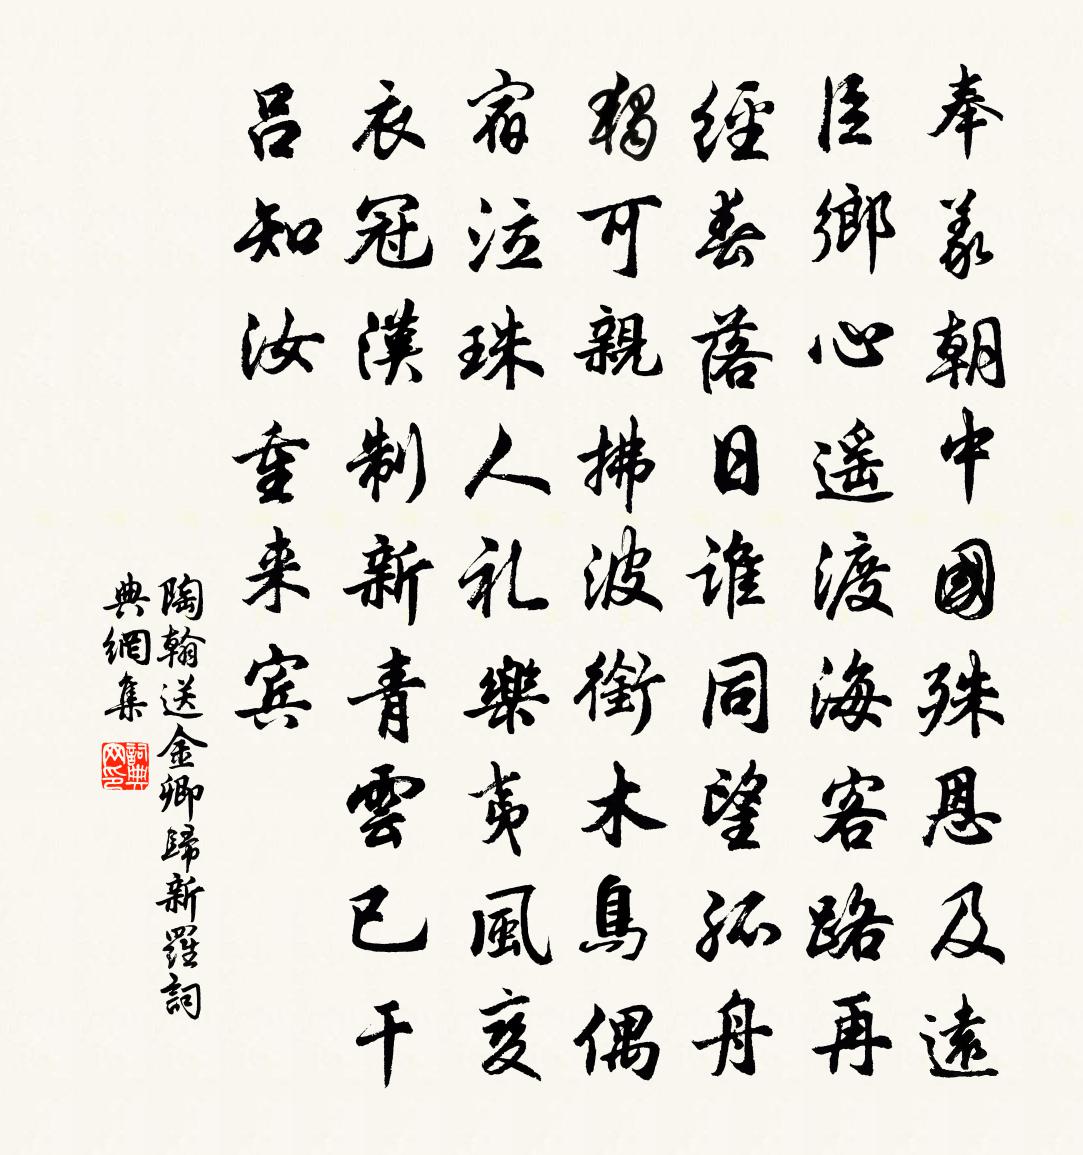 奉義朝中國殊恩及遠
臣鄉心遙渡海客路再
經春落日誰同望孤舟
獨可親拂波銜木鳥偶
宿泣珠人礼樂夷風變
衣冠漢制新青雲已干
呂知汝重来賓
陶翰送金卿歸新羅詞
典網集
詞典网印